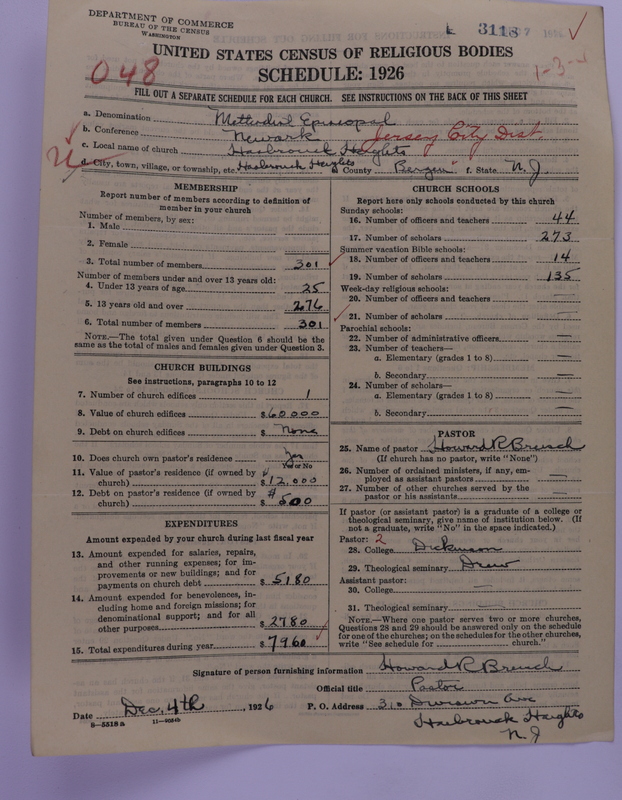 DEPARTMENT OF COMMERCE
BUREAU OF THE CENSUS
WASHINGTON
3118
UNITED STATES CENSUS OF RELIGIOUS BODIES
048
SCHEDULE: 1926
1-3-
FILL OUT A SEPARATE SCHEDULE FOR EACH CHURCH. SEE INSTRUCTIONS ON THE BACK OF THIS SHEET
a. Denomination Methodist Episcopal
b. Conference Newark Jersey City Dist.
c. Local name of church Hasbrouck Heights
City, town, village, or township, etc. Hasbrouck Heights County Bergen f. State N. J.
MEMBERSHIP
Report number of members according to definition of member in your church
Number of members, by sex:
1. Male
2. Female
3. Total number of members 301
Number of members under and over 13 years old:
4. Under 13 years of age 25
5. 13 years old and over 276
6. Total number of members 301
NOTE.—The total given under Question 6 should be the
same as the total of males and females given under Question 3.
CHURCH BUILDINGS
See instructions, paragraphs 10 to 12
7. Number of church edifices 1
8. Value of church edifices $60000
9. Debt on church edifices $ None
10. Does church own pastor's residence? Yes
Yes or No
11. Value of pastor's residence (if owned by
church) $12,000
12. Debt on pastor's residence (if owned by
church) $ 500
EXPENDITURES
Amount expended by your church during last fiscal year
13. Amount expended for salaries, repairs,
and other running expenses; for im-
provements or new buildings; and for
payments on church debt $ 5180
14. Amount expended for benevolences, in-
cluding home and foreign missions; for
denominational support; and for all
other purposes $ 2780
15. Total expenditures during year $ 7960
CHURCH SCHOOLS
Report here only schools conducted by this church
Sunday schools:
16. Number of officers and teachers 44
17. Number of scholars 273
Summer vacation Bible schools:
18. Number of officers and teachers 14
19. Number of scholars 135
Week-day religious schools:
20. Number of officers and teachers —
21. Number of scholars —
Parochial schools:
22. Number of administrative officers —
23. Number of teachers—
a. Elementary (grades 1 to 8) —
b. Secondary —
24. Number of scholars—
a. Elementary (grades 1 to 8) —
b. Secondary —
PASTOR
25. Name of pastor Howard R Breisch
(If church has no pastor, write "None")
26. Number of ordained ministers, if any, em-
ployed as assistant pastors —
27. Number of other churches served by the
pastor or his assistants —
If pastor (or assistant pastor) is a graduate of a college or
theological seminary, give name of institution below. (If
not a graduate, write "No" in the space indicated.)
Pastor: 2
28. College Dickinson
29. Theological seminary Drew
Assistant pastor:
30. College —
31. Theological seminary —
NOTE.—Where one pastor serves two or more churches,
Questions 28 and 29 should be answered only on the schedule
for one of the churches; on the schedules for the other churches,
write "See schedule for church."
Signature of person furnishing information Howard R Breisch
Official title Pastor
Date Dec. 4th, 1926 P. O. Address 310 Division Ave
8-5518a 11-9034b
Hasbrouck Heights
N. J